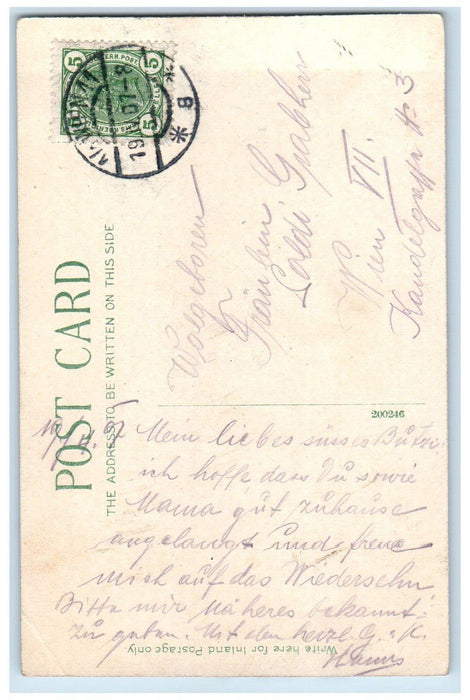 5 5
5 5
WIEN
19 07
8
POST CARD
THE ADDRESS TO BE WRITTEN ON THIS SIDE
Wolgeboren
Fräulein
Poldi Grabherr
Wien VII.
Kandelgasse № 3
200246
Mein liebes süsses Butzi!
ich hoffe dass Du sowie
Mama gut zuhause
angelangt und freue
mich auf das Wiedersehn
Bitte mir näheres bekannt
zu geben. Mit den herzl. G. u. K.
Hanns
Write here for Inland Postage only.